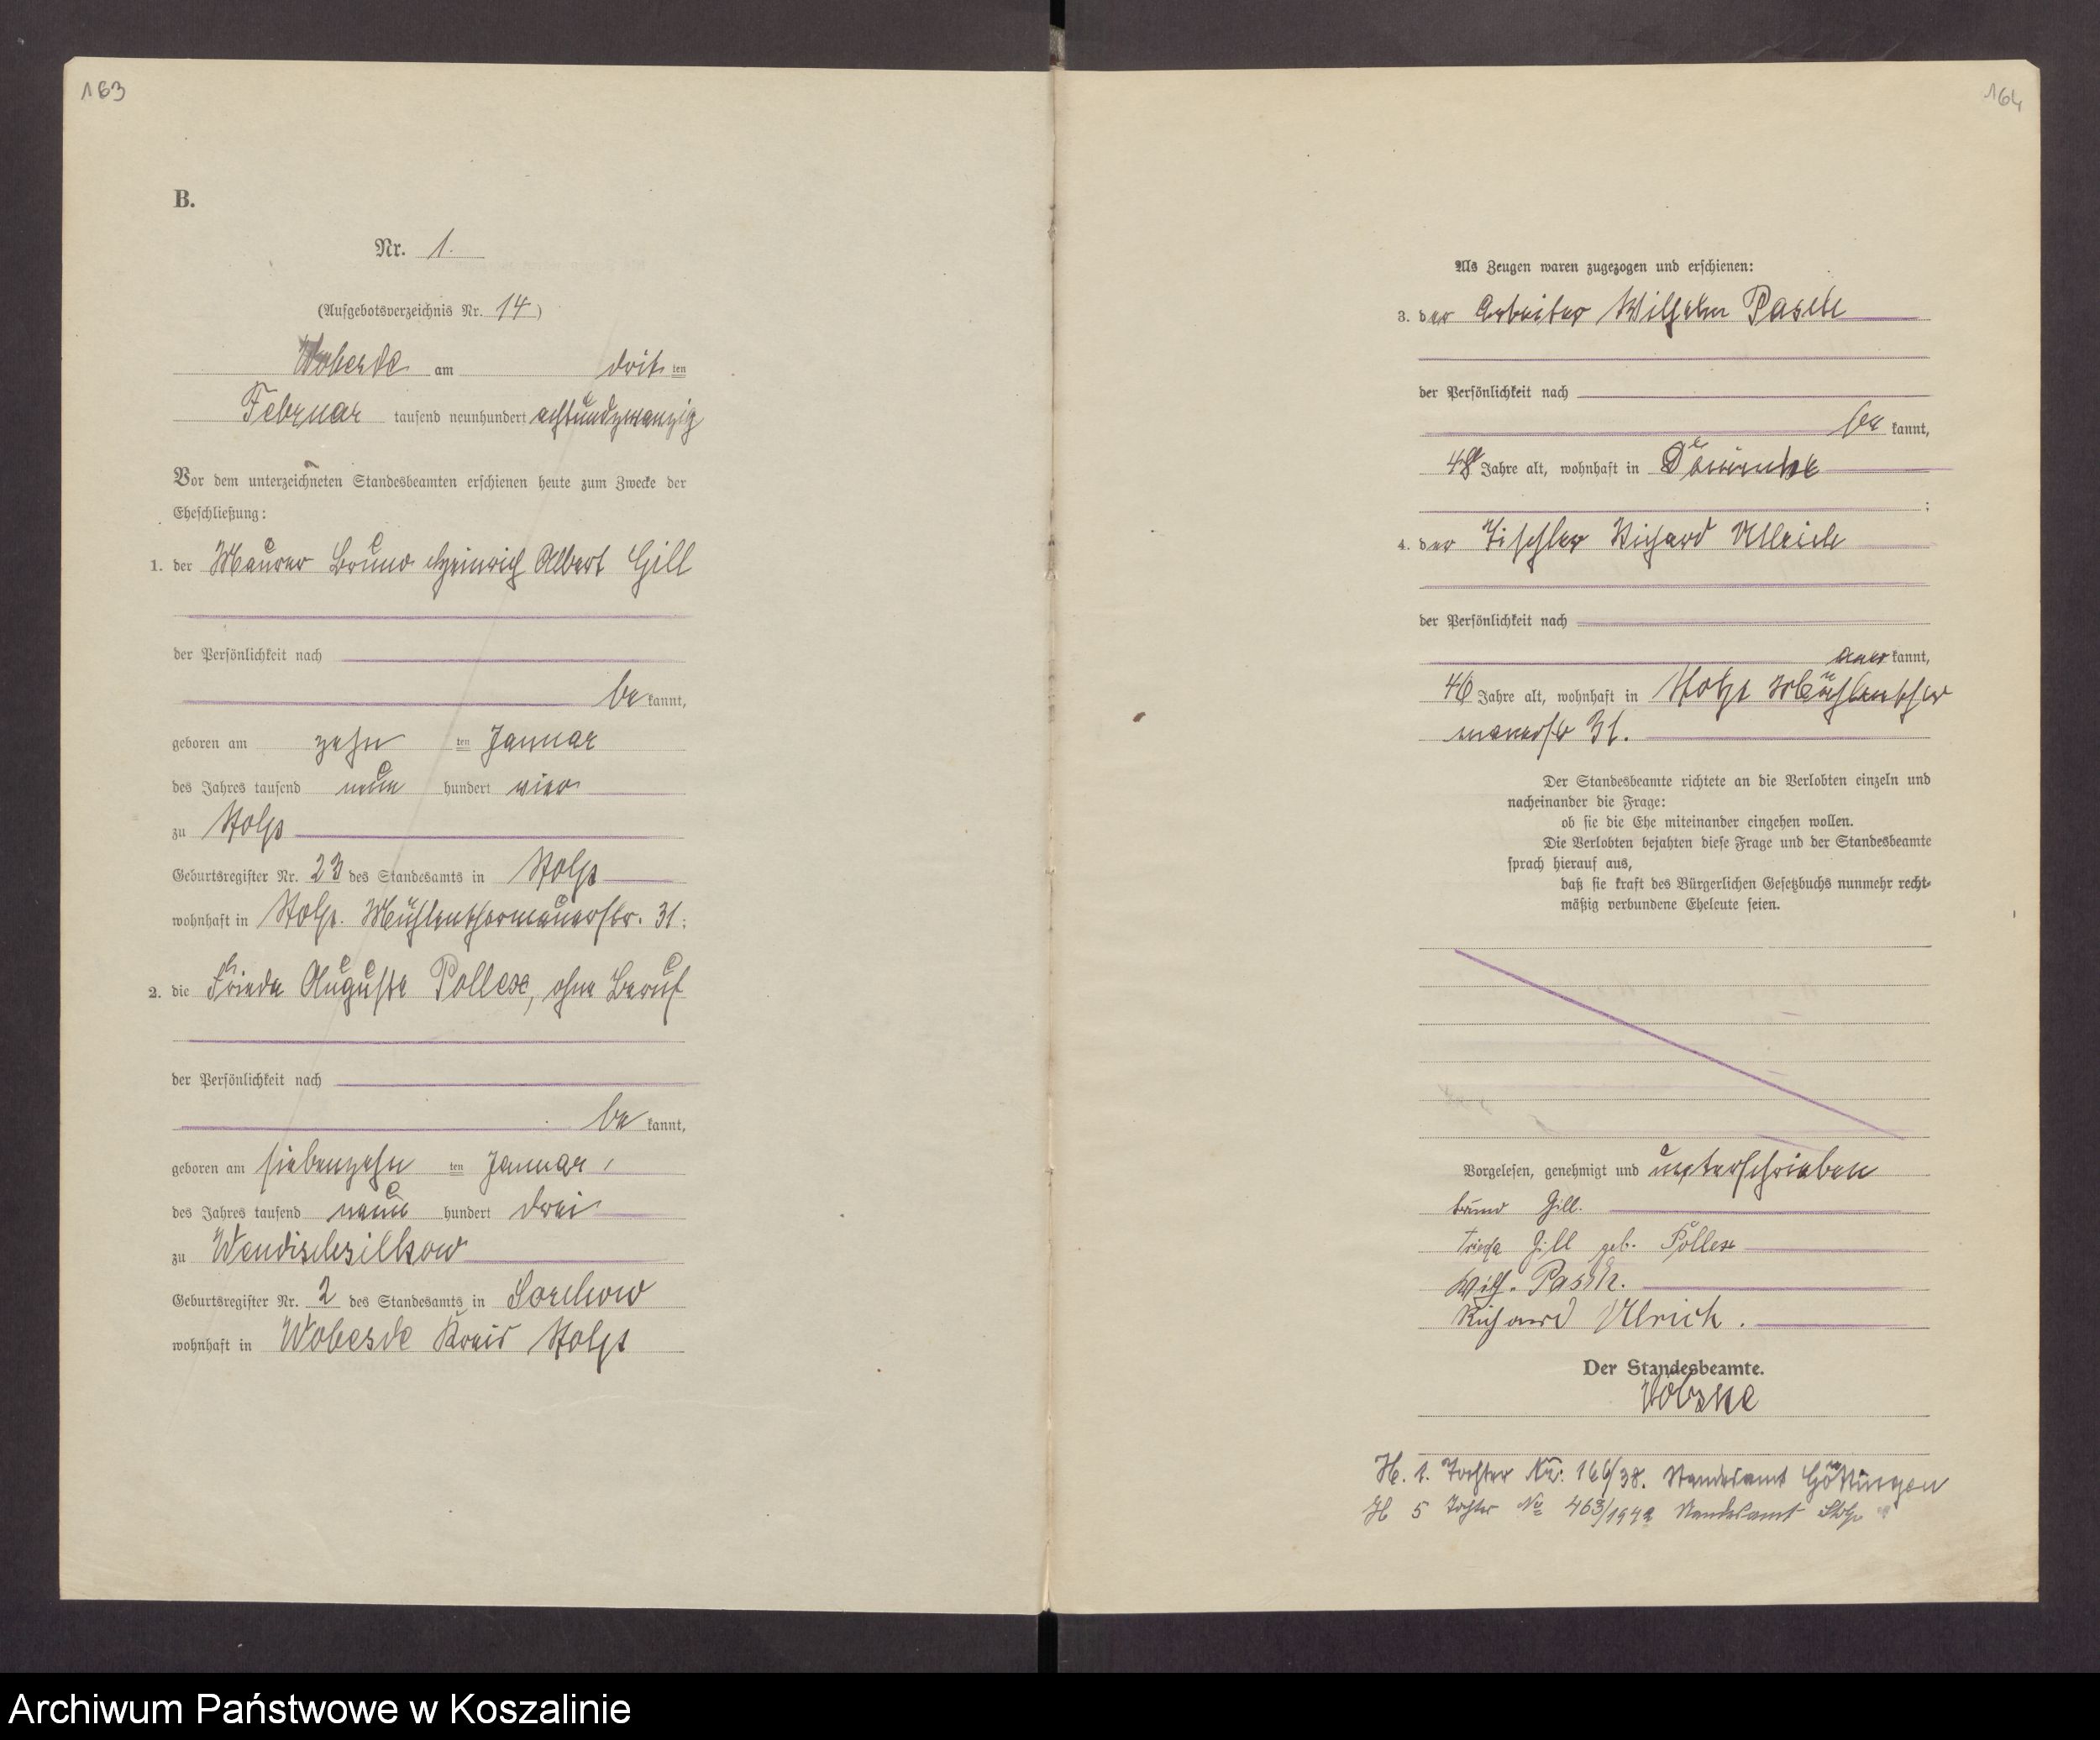 163
164
B.
Nr. 1.
(Aufgebotsverzeichnis Nr. 14)
Wobesde am drit ten
Februar tausend neunhundert achtundzwanzig
Vor dem unterzeichneten Standesbeamten erschienen heute zum Zwecke der
Eheschließung:
1. der Maurer Bruno Heinrich Albert Gill
der Persönlichkeit nach
be kannt,
geboren am zehn ten Januar
des Jahres tausend neun hundert vier
zu Stolp
Geburtsregister Nr. 23 des Standesamts in Stolp
wohnhaft in Stolp. Mühlenthormauerstr. 31:
2. die Frieda Auguste Pollex, ohne Beruf
der Persönlichkeit nach
be kannt,
geboren am siebenzehn ten Januar
des Jahres tausend neun hundert drei
zu Wendischsilkow
Geburtsregister Nr. 2 des Standesamts in Sorchow
wohnhaft in Wobesde Kreis Stolp
Als Zeugen waren zugezogen und erschienen:
3. der Arbeiter Wilhelm Pasch
der Persönlichkeit nach
be kannt,
48 Jahre alt, wohnhaft in
:
4. der Tischler Richard Ullrich
der Persönlichkeit nach
aner kannt,
46 Jahre alt, wohnhaft in Stolp Mühlenthor
mauerstr 31.
Der Standesbeamte richtete an die Verlobten einzeln und
nacheinander die Frage:
ob sie die Ehe miteinander eingehen wollen.
Die Verlobten bejahten diese Frage und der Standesbeamte
sprach hierauf aus,
daß sie kraft des Bürgerlichen Gesetzbuchs nunmehr recht-
mäßig verbundene Eheleute seien.
Vorgelesen, genehmigt und unterschrieben
Bruno Gill.
Frieda Gill geb. Pollex
Wilh. Pasch.
Richard Ulrich.
Der Standesbeamte.
H. 1. Tochter Nr: 166/38. Standesamt Göttingen
H 5 Tochter No 463/1942 Standesamt Stolp
Archiwum Państwowe w Koszalinie